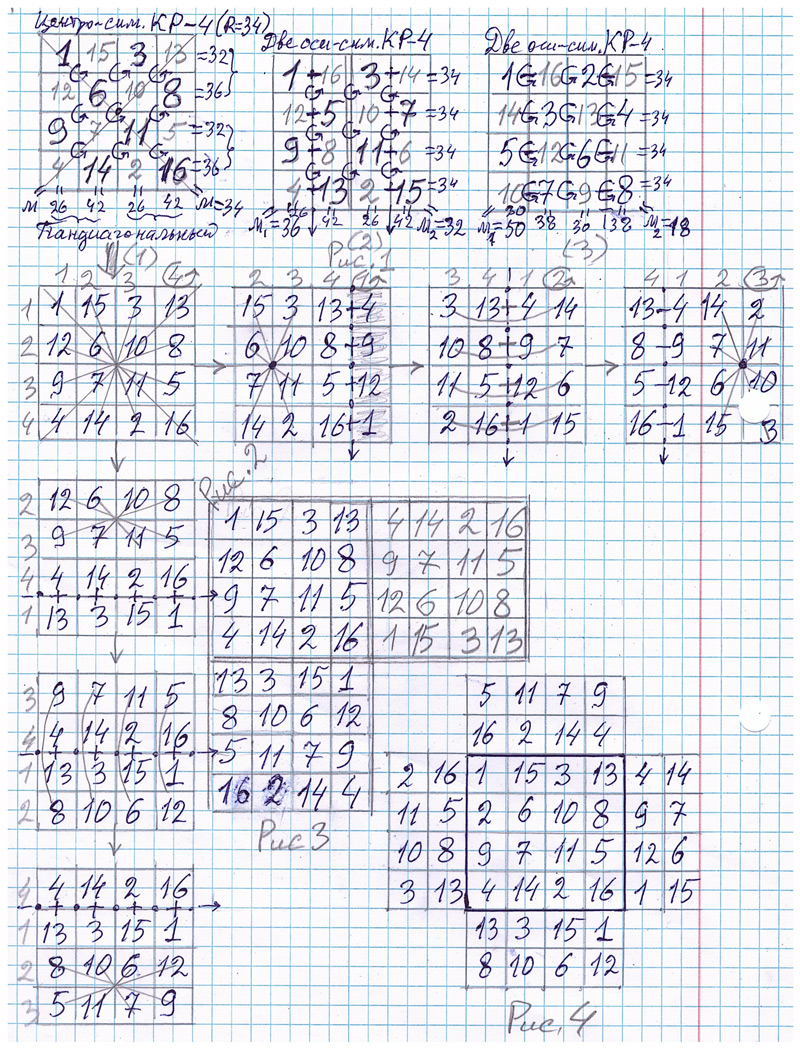 Центро-сим. КР-4 (R=34)
Две оси-сим. КР-4
Две оси-сим. КР-4
1 15 3 13 =32
12 6 10 8 =36
9 7 11 5 =32
4 14 2 16 =36
M 26 42 26 42 M=34
Пандиагональный
(1)
1+16 3+14 =34
12+5 10+7 =34
9+8 11+6 =34
4+13 2+15 =34
M₁=36 26 42 26 42 M₂=32
(2)
Рис. 1
1 16 2 15 =34
14 3 13 4 =34
5 12 6 11 =34
10 7 9 8 =34
M₁=50 30 38 30 38 M₂=18
(3)
1 2 3 4
1 1 15 3 13
2 12 6 10 8
3 9 7 11 5
4 4 14 2 16
2 3 4 1
15 3 13+4
6 10 8+9
7 11 5+12
14 2 16+1
3 4 1 2
3 13+4 14
10 8+9 7
11 5+12 6
2 16+1 15
4 1 2 3
13-4 14 2
8-9 7 11
5-12 6 10
16-1 15 3
Рис. 2
2 12 6 10 8
3 9 7 11 5
4 4 14 2 16
1 13 3 15 1
3 9 7 11 5
4 4 14 2 16
1 13 3 15 1
2 8 10 6 12
4 4 14 2 16
1 13 3 15 1
2 8 10 6 12
3 5 11 7 9
1 15 3 13 4 14 2 16
12 6 10 8 9 7 11 5
9 7 11 5 12 6 10 8
4 14 2 16 1 15 3 13
13 3 15 1
8 10 6 12
5 11 7 9
16 2 14 4
Рис 3
5 11 7 9
16 2 14 4
2 16 1 15 3 13 4 14
11 5 2 6 10 8 9 7
10 8 9 7 11 5 12 6
3 13 4 14 2 16 1 15
13 3 15 1
8 10 6 12
Рис. 4